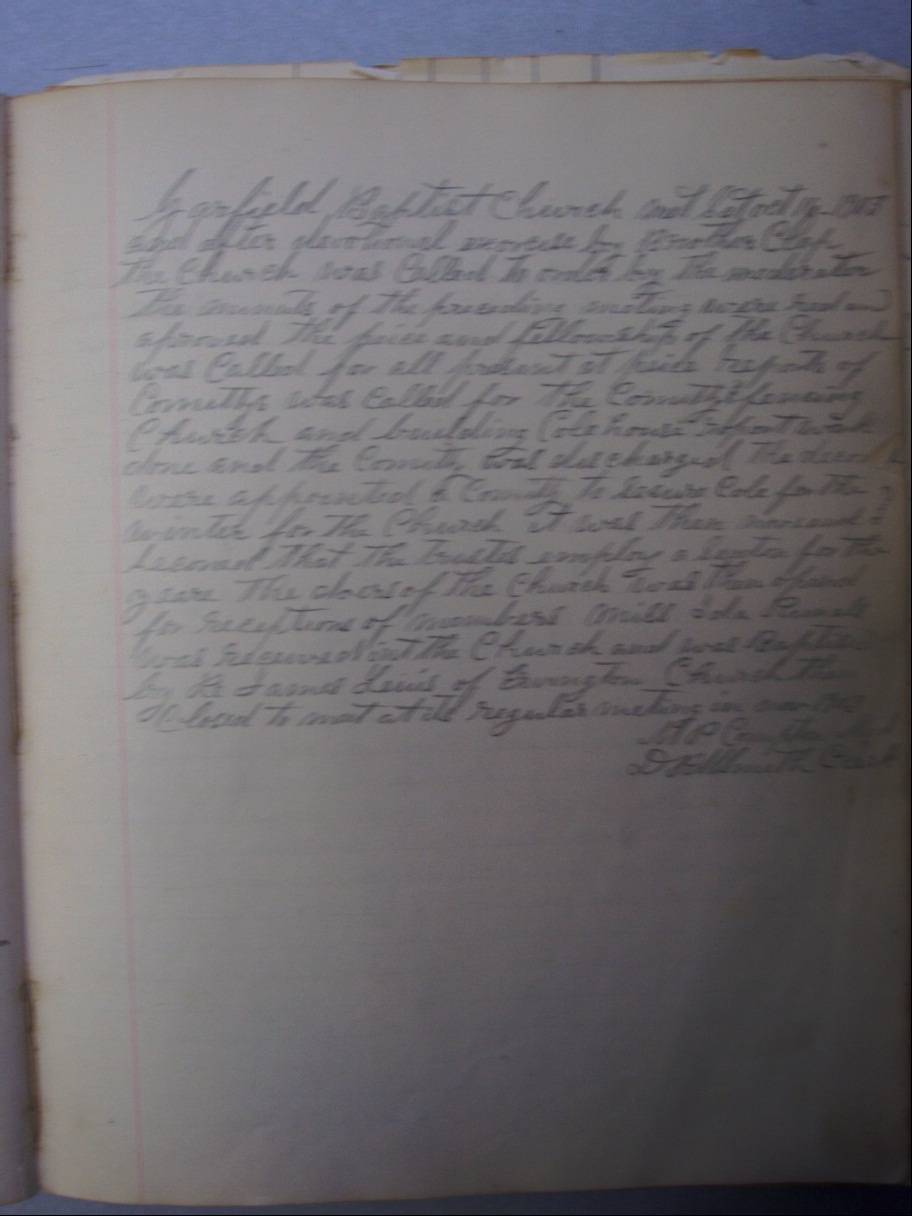 Garfield Baptist Church met Sat oct
and after devotional exercise by Brother Clap
the Church was Called to order by the moderator
the minuts of the preceding meting were read and
aproved the peice and fellowship of the Church
was Called for all present at peice reports of
Comittys was Called for the Comittys fencing
Church and building Cole house report work
done and the Comitty was discharged the
were appointed a Comitty to secure Cole for the
winter for the Church it was then moved &
second that the trustes employ a sexton for the
yeare the doers of the Church was then opend
for receptions of members Miss Ida
was received int the Church and was Baptised
by Re James Lewis of Ewington Church then
Closed to meet at its regular meting in nov
Clerk